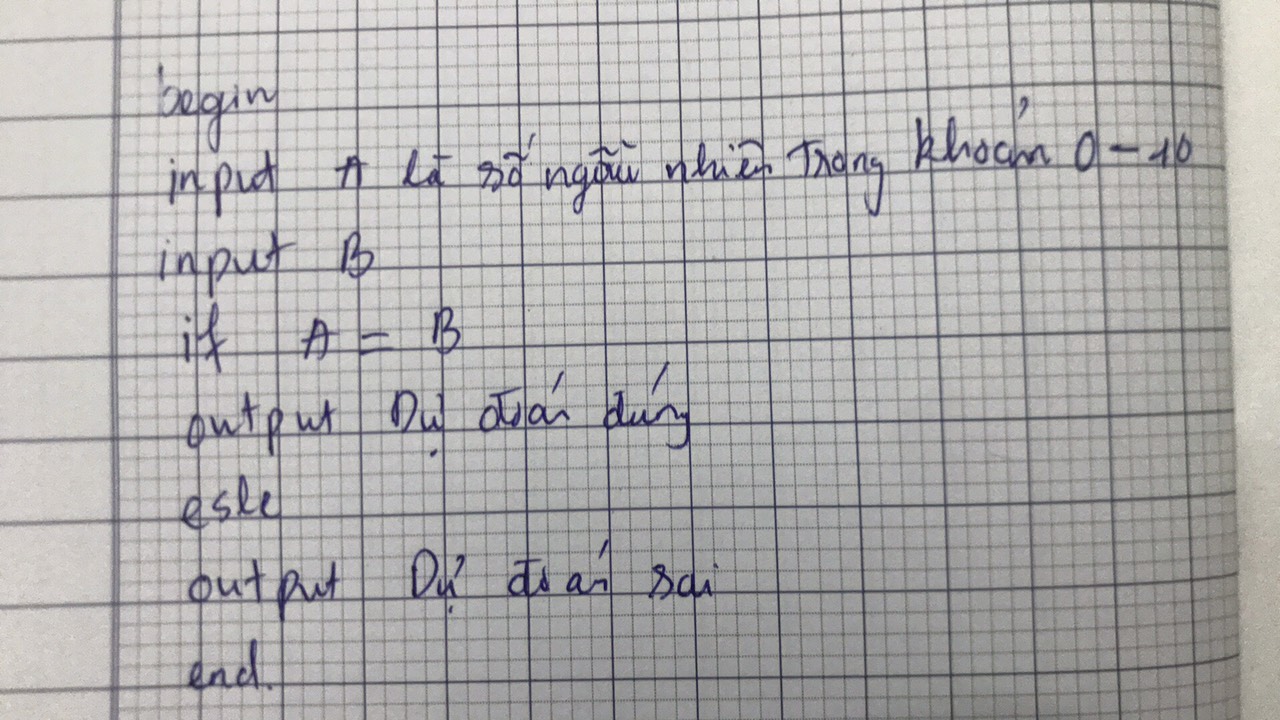 begin
input A là số ngẫu nhiên trong khoản 0 - 10
input B
if A = B
output Dự đoán đúng
esle
output Dự đoán sai
end.